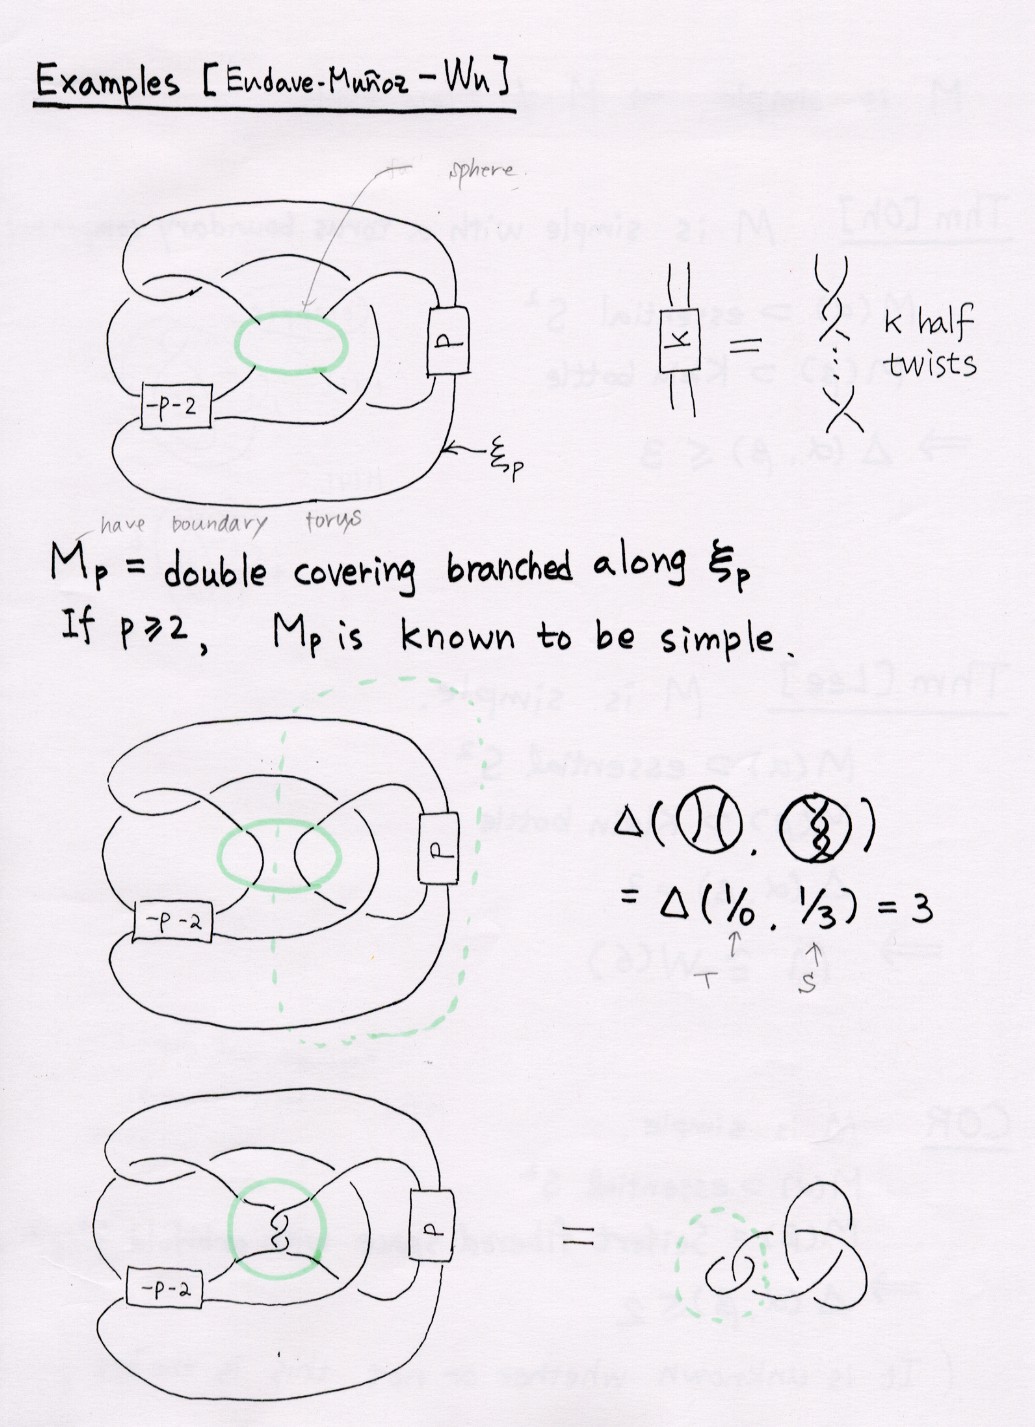 Examples [Eudave-Muñoz - Wu]
sphere.
P
-P-2
ξp
k
=
k half
twists
have boundary torus
Mp = double covering branched along ξp
If p≥2, Mp is known to be simple.
P
-P-2
Δ( , )
= Δ(1/0, 1/3) = 3
↑ ↑
T S
P
-P-2
=